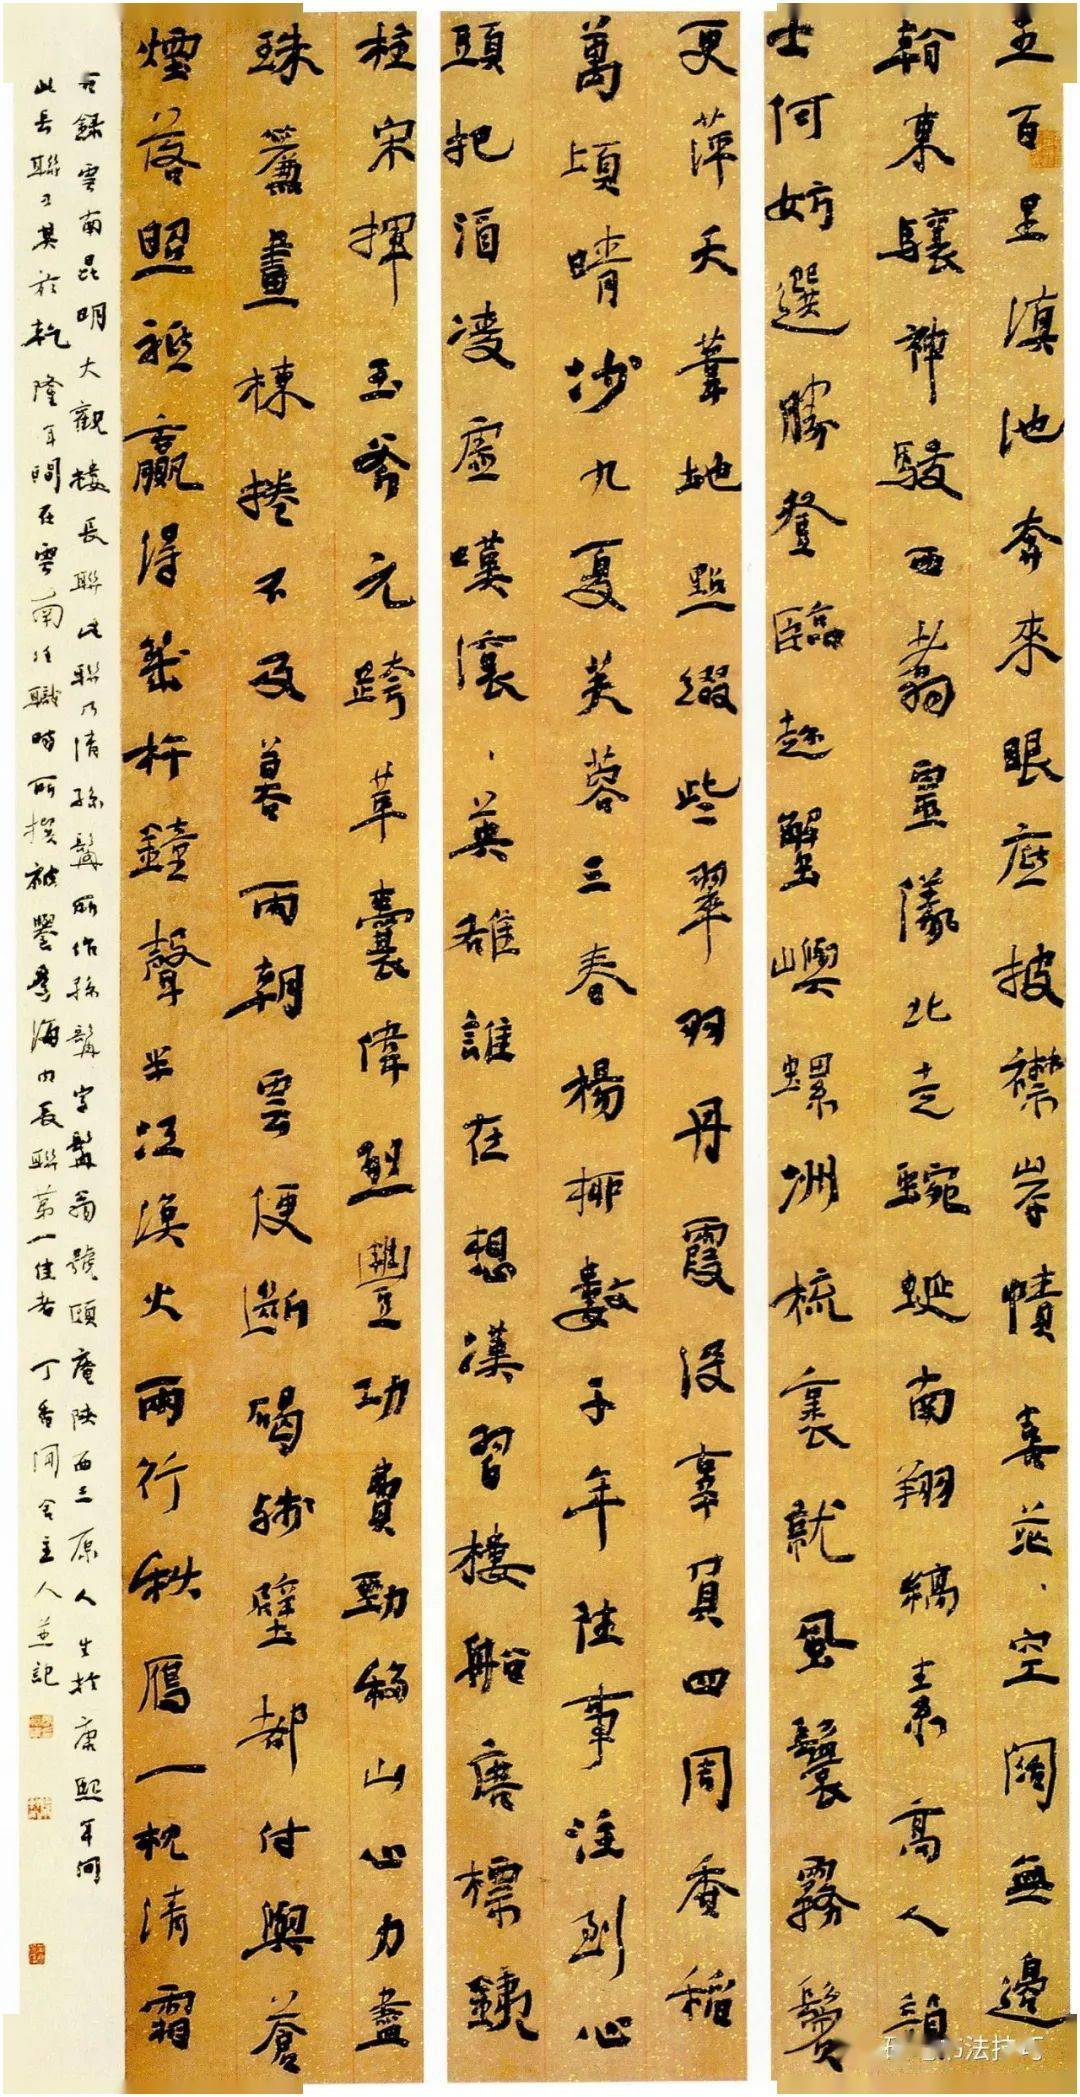 五百里滇池奔來眼底披襟岸幘喜茫、空闊無邊
看東驤神駿西翥靈儀北走蜿蜒南翔縞素高人韻
士何妨選勝登臨趁蟹嶼螺洲梳裹就風鬟霧鬢
更萍天葦地點綴些翠羽丹霞沒辜負四周香稻
萬頃晴沙九夏芙蓉三春楊柳數千年往事注到心
頭把酒凌虛嘆滾、英雄誰在想漢習樓船唐標鐵
柱宋揮玉斧元跨革囊偉烈豐功費勁移山心力盡
珠簾畫棟捲不及暮雨朝雲便斷碣殘壁都付與蒼
煙落照祗贏得幾杵鐘聲半江漁火兩行秋雁一枕清霜
右錄雲南昆明大觀樓長聯此聯乃清孫髯所作孫髯字髯翁號頤庵陝西三原人生於康熙年間
此長聯乃其於乾隆年間在雲南任職時所撰被譽為海內長聯第一佳者 丁香閒舍主人並記
书法技巧